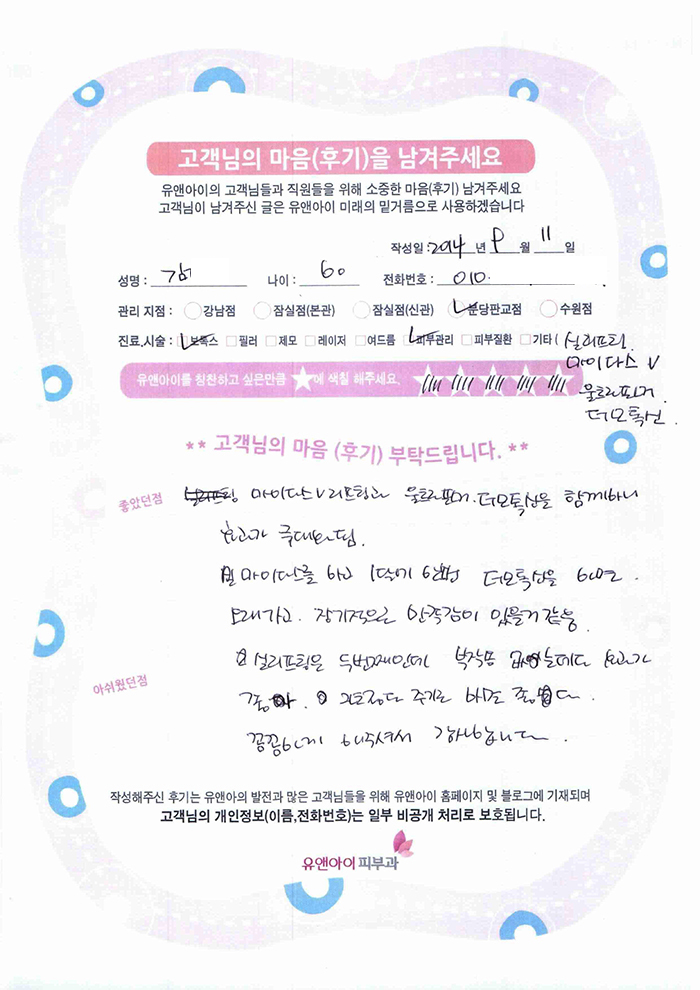 고객님의 마음(후기)을 남겨주세요
유앤아이의 고객님들과 직원들을 위해 소중한 마음(후기) 남겨주세요
고객님이 남겨주신 글은 유앤아이 미래의 밑거름으로 사용하겠습니다
작성일 : 2014 년 9 월 11 일
성명 : 김 나이 : 60 전화번호 : 010
관리 지점 : 강남점 잠실점(본관) 잠실점(신관) 분당판교점 수원점
진료.시술 : 보톡스 필러 제모 레이저 여드름 피부관리 피부질환 기타 ( 실리프팅.
마이다스 V
유앤아이를 칭찬하고 싶은만큼 에 색칠 해주세요.
울트라핀거.
더모톡신.
** 고객님의 마음 (후기) 부탁드립니다. **
좋았던점
마이다스 V 리프팅과 울트라핀거. 더모톡신을 함께하니
효과가 극대화됨.
마이다스를 하고 1달에 한번 더모톡신을 하면.
오래가고. 장기적으로 만족감이 있을거 같음.
실리프팅은 두번째인데 부작용 없는데다 효과가
아쉬웠던점
좋아. 주기도 해도 좋습니다.
꼼꼼하게 해주셔서 감사합니다.
작성해주신 후기는 유앤아의 발전과 많은 고객님들을 위해 유앤아이 홈페이지 및 블로그에 기재되며
고객님의 개인정보(이름,전화번호)는 일부 비공개 처리로 보호됩니다.
유앤아이 피부과